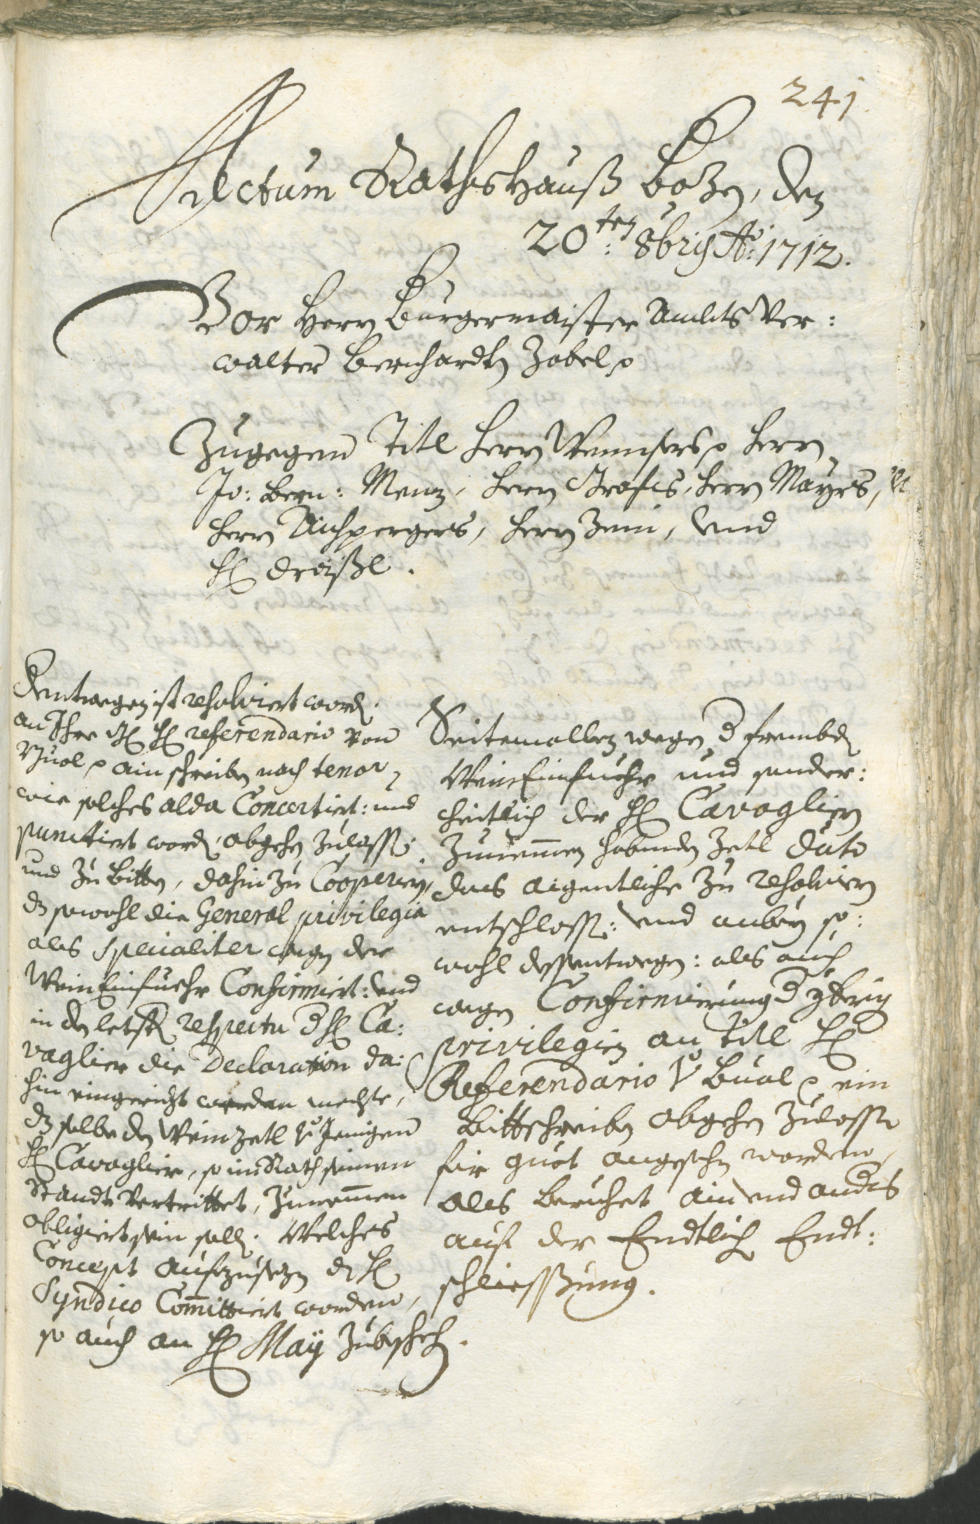 241
Actum Rathshauß Bozen, den
20ten: 8bris Ao: 1712.
Vor Herrn Burgermaister Ambts Ver:
walter Bernhardten Zobel p
Zugegen Titl Herrn Wennsers p Herrn
Jo: Bern: Menz, Herrn Grafens, Herrn Mayrs,
Herrn Aichpergers, Herrn Zeni, und
H: Dreißl.
Dentwegen ist resolviert word.
an Ihro H: referendario von
Bual p ain schreiben nach tenor,
wie solches alda Concertiert: und
punctiert word, abgehen zulass:
und zu bitten, dahin zu Cooperirn,
dz sowohl die General privilegia
als specialiter wegen der
Wein Einfuehr Confirmiert: und
in den letsten respectu d H: Ca:
vaglier die Declaration da:
hin eingericht werden mechte,
dz selbe den Wein zetl v: jenigen
H: Cavaglier, so in Rath seinen
Standt Vertrittet, zunemmen
obligiert sein soll. Welches
Concept aufzusezen d H:
Syndico Committiert worden,
so auch an H: Maÿ zubeschech.
Seitemallen wegen d frembden
Wein Einfuehr und sonder:
heitlich der H: Cavaglieren
Zunemmen habenden Zetl dato
das aigentliche zu resolviern
entschloss: und anbey so:
wohl dessentwegen: als auch
wegen Confirmierung d ybrig
privilegien an Titl H:
Referendario v: Bual p ein
bittschreiben abgehen zulassen
fir guet angesehen worden,
als beruhet ain und anders
auf der Endtlich Endt:
schliessung.